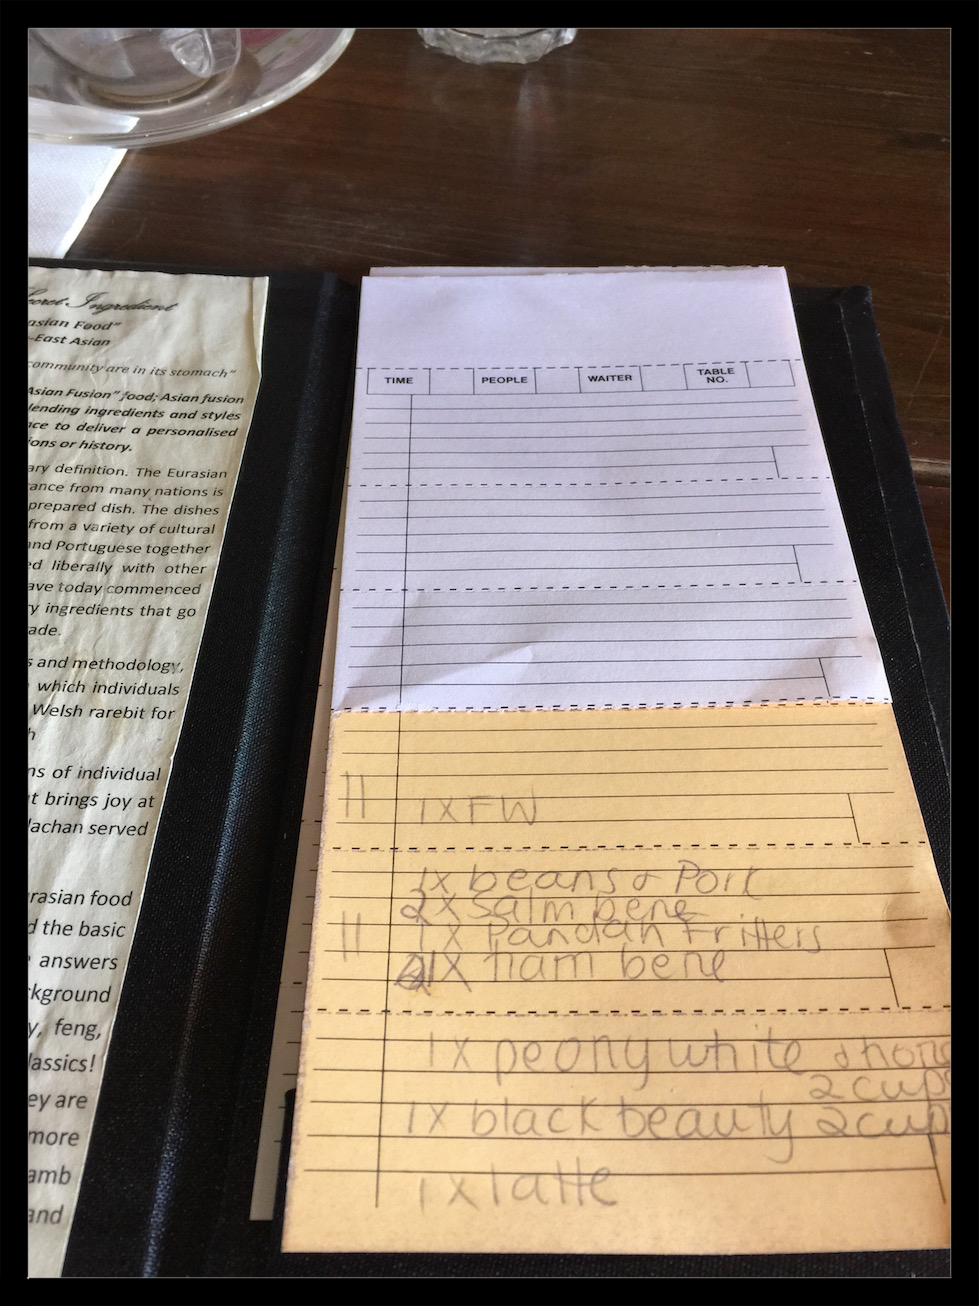 Secret Ingredient
asian Food"
-East Asian
community are in its stomach"
Asian Fusion" food; Asian fusion
lending ingredients and styles
nce to deliver a personalised
ions or history.
ary definition. The Eurasian
ance from many nations is
prepared dish. The dishes
from a variety of cultural
and Portuguese together
ed liberally with other
ave today commenced
ry ingredients that go
ade.
s and methodology,
which individuals
Welsh rarebit for
h
ns of individual
t brings joy at
lachan served
rasian food
d the basic
answers
kground
y, feng,
lassics!
ey are
more
amb
and
TIME PEOPLE WAITER TABLE NO.
11 1X FW
1X beans & Pork
2X Salm bene
11 1X Pandan Fritters
1X Ham bene
1X peony white & hone
2 cups
1X black beauty 2 cup
1X latte